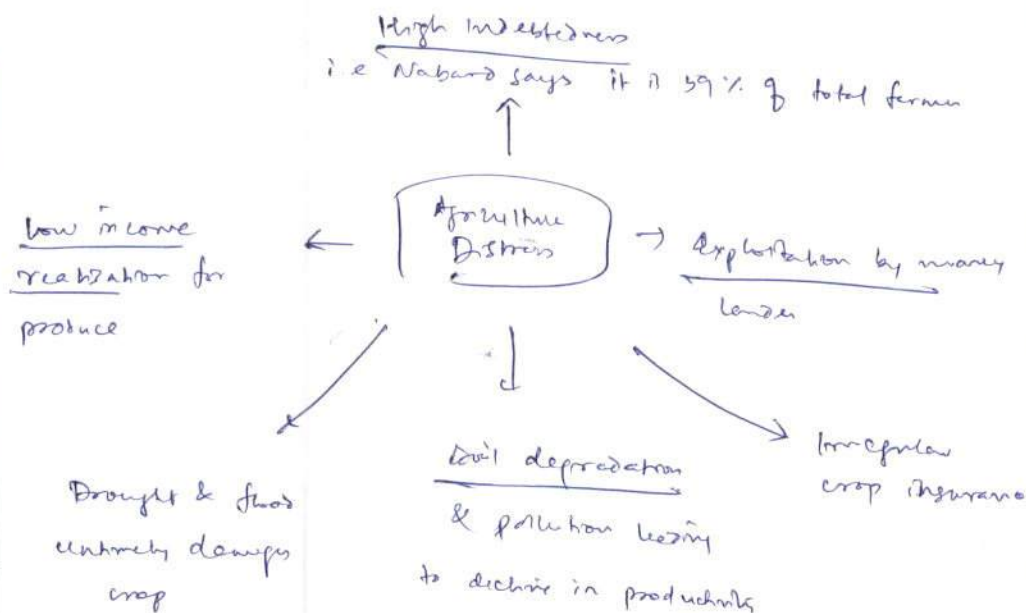 High Indebtedness
i.e Nabard says it is 59% of total farmer
Agriculture
Distress
Low income
realization for
produce
exploitation by money
lender
Drought & flood
untimely damages
crop
Soil degradation
& pollution leading
to decline in productivity
Irregular
crop insurance